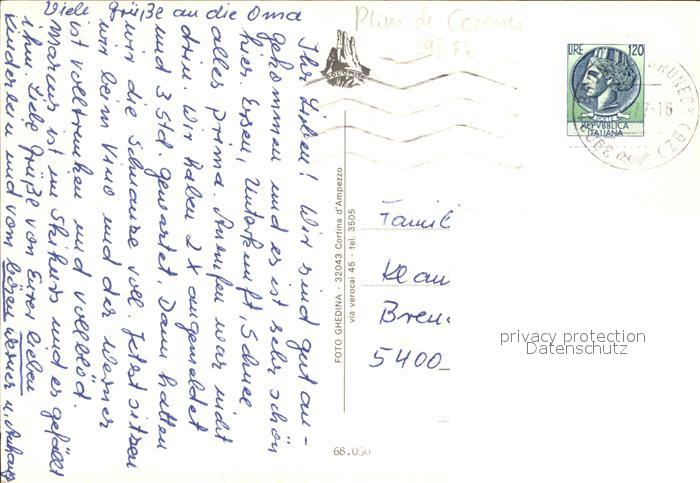 Viele Grüße an die Oma
Ihr Lieben! Wir sind gut an-
gekommen und es ist sehr schön
hier. Essen, Unterkunft, Schnee
alles prima. Anrufen war nicht
drin. Wir haben 2x angemeldet
und 3 Std. gewartet. Dann hatten
wir die Schnauze voll. Jetzt sitzen
wir beim Vino und der Werner
ist volltrunken und vollblöd.
Marcus ist im Skikurs und es gefällt
ihm. Liebe Grüße von Euren lieben
Kinderlein und vom bösen Werner u. Anhang
Plan de Corones
FOTO GHEDINA - 32043 Cortina d'Ampezzo
via verocai 45 - tel. 3505
68.050
LIRE 120
REPVBBLICA
ITALIANA
BRUNECK (BZ)
-16
Famili
Klau
Bren
5400
privacy protection
Datenschutz